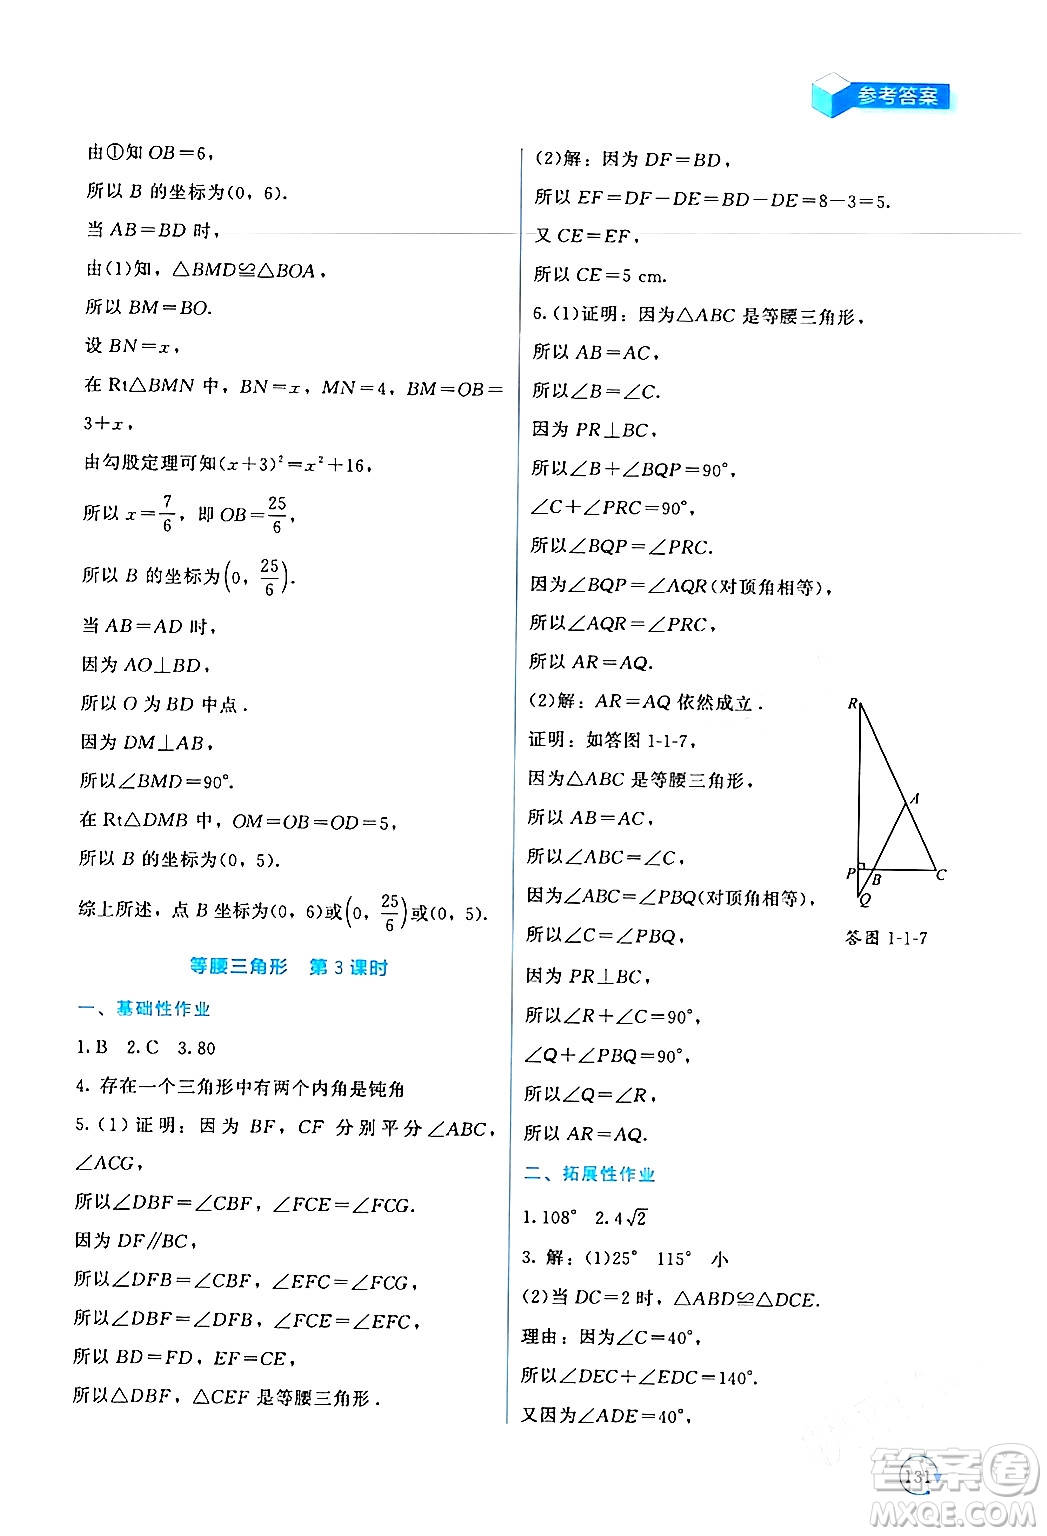 参考答案
由①知 OB＝6，
所以 B 的坐标为(0，6).
当 AB＝BD 时，
由(1)知，△BMD≌△BOA，
所以 BM＝BO.
设 BN＝x，
在 Rt△BMN 中，BN＝x，MN＝4，BM＝OB＝
3＋x，
由勾股定理可知(x＋3)²＝x²＋16，
所以 x＝7/6，即 OB＝25/6，
所以 B 的坐标为(0，25/6).
当 AB＝AD 时，
因为 AO⊥BD，
所以 O 为 BD 中点．
因为 DM⊥AB，
所以∠BMD＝90°.
在 Rt△DMB 中，OM＝OB＝OD＝5，
所以 B 的坐标为(0，5).
综上所述，点 B 坐标为(0，6)或(0，25/6)或(0，5).
等腰三角形　第 3 课时
一、基础性作业
1.B　2.C　3.80
4. 存在一个三角形中有两个内角是钝角
5.(1)证明：因为 BF，CF 分别平分∠ABC，
∠ACG，
所以∠DBF＝∠CBF，∠FCE＝∠FCG.
因为 DF∥BC，
所以∠DFB＝∠CBF，∠EFC＝∠FCG，
所以∠DBF＝∠DFB，∠FCE＝∠EFC，
所以 BD＝FD，EF＝CE，
所以△DBF，△CEF 是等腰三角形．
(2)解：因为 DF＝BD，
所以 EF＝DF－DE＝BD－DE＝8－3＝5.
又 CE＝EF，
所以 CE＝5 cm.
6.(1)证明：因为△ABC 是等腰三角形，
所以 AB＝AC，
所以∠B＝∠C.
因为 PR⊥BC，
所以∠B＋∠BQP＝90°，
∠C＋∠PRC＝90°，
所以∠BQP＝∠PRC.
因为∠BQP＝∠AQR(对顶角相等)，
所以∠AQR＝∠PRC，
所以 AR＝AQ.
(2)解：AR＝AQ 依然成立．
证明：如答图 1-1-7，
因为△ABC 是等腰三角形，
所以 AB＝AC，
所以∠ABC＝∠C.
因为∠ABC＝∠PBQ(对顶角相等)，
所以∠C＝∠PBQ，
因为 PR⊥BC，
所以∠R＋∠C＝90°，
∠Q＋∠PBQ＝90°，
所以∠Q＝∠R，
所以 AR＝AQ.
R
A
P
B
C
Q
答图 1-1-7
二、拓展性作业
1.108°　2.4√2
3. 解：(1)25°　115°　小
(2)当 DC＝2 时，△ABD≌△DCE.
理由：因为∠C＝40°，
所以∠DEC＋∠EDC＝140°.
又因为∠ADE＝40°，
131
答案卷
MXQE.COM